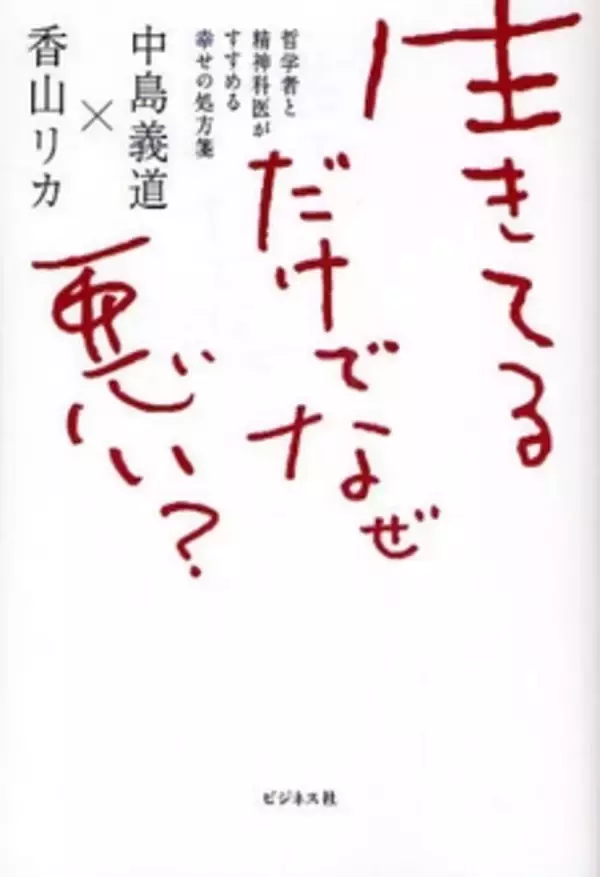 生きてる
だけでなぜ
悪い?
哲学者と
精神科医が
すすめる
幸せの処方箋
中島義道
×
香山リカ
ビジネス社